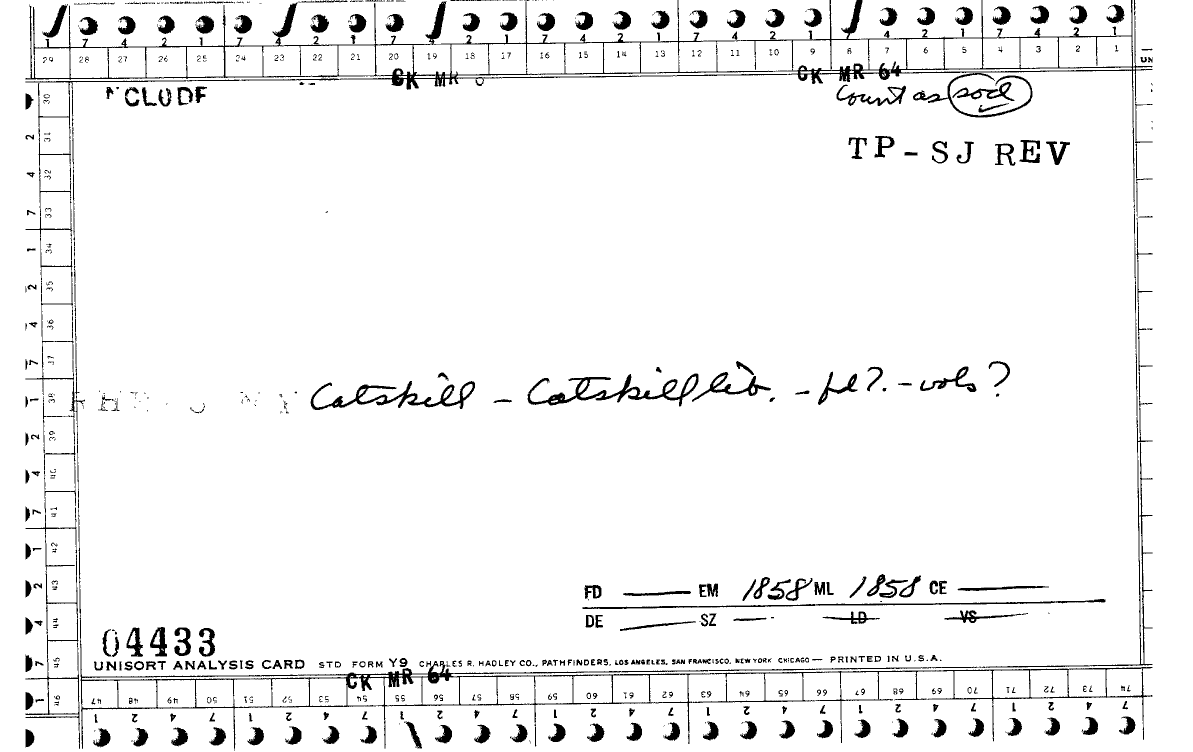 1 7 4 2 1 7 4 2 1 7 4 2 1 7 4 2 1 7 4 2 1 7 4 2 1 7 4 2 1
29 28 27 26 25 24 23 22 21 20 19 18 17 16 15 14 13 12 11 10 9 8 7 6 5 4 3 2 1
CK MR 6 CK MR 64
CLODF Count as socl
TP-SJ REV
30
2 31
4 32
7 33
1 34
2 35
4 36
7 37
1 38 Catskill - Catskill lib. - fd?. - vols?
2 39
4 40
7 41
1 42
2 43 FD EM 1858 ML 1858 CE
4 44 DE SZ LD VS
04433
7 45 UNISORT ANALYSIS CARD STD FORM Y9 CHARLES R. HADLEY CO., PATHFINDERS, LOS ANGELES, SAN FRANCISCO, NEW YORK CHICAGO — PRINTED IN U.S.A.
CK MR 64
1 46 47 48 49 50 51 52 53 54 55 56 57 58 59 60 61 62 63 64 65 66 67 68 69 70 71 72 73 74
1 2 4 7 1 2 4 7 1 2 4 7 1 2 4 7 1 2 4 7 1 2 4 7 1 2 4 7